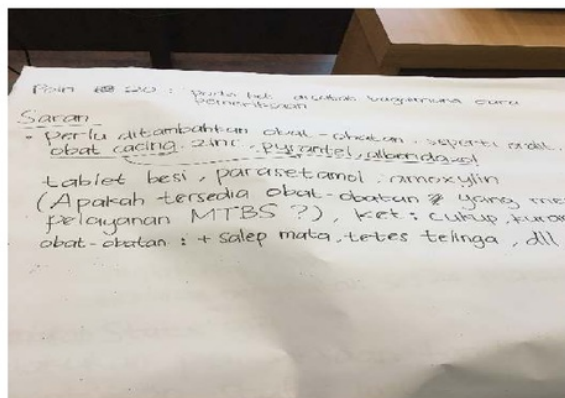 Poin 20 : perlu ket disetiap bagaimana cara
pemeriksaan
Saran
- perlu ditambahkan obat-obatan, seperti oralit,
obat cacing, zinc, pyrantel, albendazol
tablet besi, parasetamol, amoxylin
(Apakah tersedia obat-obatan yang me
pelayanan MTBS ?), ket : cukup, kuran
obat-obatan : + salep mata, tetes telinga, dll